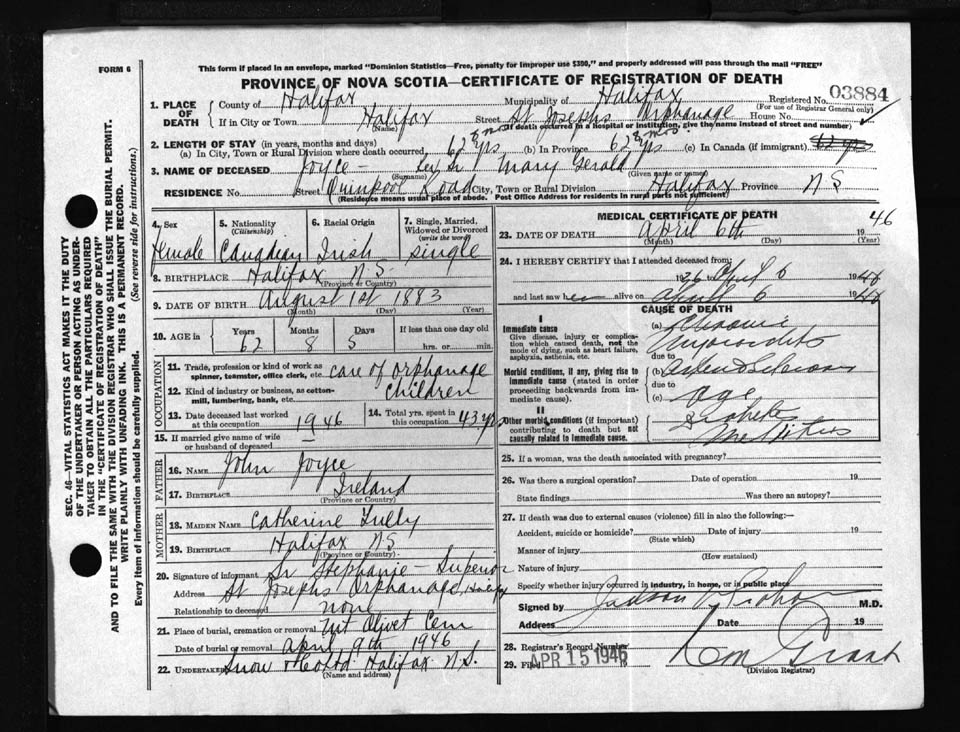 FORM 6
This form if placed in an envelope, marked "Dominion Statistics—Free, penalty for improper use $300," and properly addressed will pass through the mail "FREE"
PROVINCE OF NOVA SCOTIA—CERTIFICATE OF REGISTRATION OF DEATH
1. PLACE OF DEATH County of Halifax Municipality of Halifax Registered No. 03884
(For use of Registrar General only)
If in City or Town Halifax Street St Josephs Orphanage House No.
(Name) (If death occurred in a hospital or institution, give the name instead of street and number)
2. LENGTH OF STAY (in years, months and days)
(a) In City, Town or Rural Division where death occurred, 62 yrs 8 mos (b) In Province 62 yrs 8 mos. (c) In Canada (if immigrant) 62 yrs
3. NAME OF DECEASED Joyce Sr Mary Gerald
(Surname) (Given name or names)
RESIDENCE No. Street Quinpool Road City, Town or Rural Division Halifax Province N S
(Residence means usual place of abode. Post Office Address for residents in rural parts not sufficient)
4. Sex Female
5. Nationality (Citizenship) Canadian
6. Racial Origin Irish
7. Single, Married, Widowed or Divorced (write the word) single
8. BIRTHPLACE Halifax N.S.
(Province or Country)
9. DATE OF BIRTH August 1st 1883
(Month) (Day) (Year)
10. AGE in Years 62 Months 8 Days 5 If less than one day old hrs. or min.
OCCUPATION
11. Trade, profession or kind of work as spinner, teamster, office clerk, etc. care of orphanage
12. Kind of industry or business, as cotton-mill, lumbering, bank, etc. children
13. Date deceased last worked at this occupation 1946
14. Total yrs. spent in this occupation 43 yrs
15. If married give name of wife or husband of deceased —
FATHER
16. NAME John Joyce
17. BIRTHPLACE Ireland
(Province or Country)
MOTHER
18. MAIDEN NAME Catherine Tully
19. BIRTHPLACE Halifax N S
(Province or Country)
20. Signature of informant Sr Stephanie - Superior
Address St Josephs Orphanage, Halifax
Relationship to deceased none
21. Place of burial, cremation or removal Mt Olivet Cem
Date of burial or removal april 9th 1946
22. UNDERTAKER Snow & Co Ltd Halifax N.S.
(Name and address)
MEDICAL CERTIFICATE OF DEATH
23. DATE OF DEATH April 6th 19 46
(Month) (Day) (Year)
24. I HEREBY CERTIFY that I attended deceased from:
1936 April 6 1946
and last saw her alive on April 6 1946
CAUSE OF DEATH
I
Immediate cause
Give disease, injury or complication which caused death, not the mode of dying, such as heart failure, asphyxia, asthenia, etc.
(a) Chronic Myocarditis
due to
Morbid conditions, if any, giving rise to immediate cause (stated in order proceeding backwards from immediate cause).
(b)
due to
(c) Age
II
Other morbid conditions (if important) contributing to death but not causally related to immediate cause.
Diabetes Mellitus
25. If a woman, was the death associated with pregnancy?
26. Was there a surgical operation? Date of operation 19
State findings Was there an autopsy?
27. If death was due to external causes (violence) fill in also the following:—
Accident, suicide or homicide? Date of injury 19
(State which)
Manner of injury
(How sustained)
Nature of injury
Specify whether injury occurred in industry, in home, or in public place
Signed by M.D.
Address Date 19
28. Registrar's Record Number
29. Filed APR 15 1946
(Division Registrar)
SEC. 46—VITAL STATISTICS ACT MAKES IT THE DUTY OF THE UNDERTAKER OR PERSON ACTING AS UNDERTAKER TO OBTAIN ALL THE PARTICULARS REQUIRED IN THE "CERTIFICATE OF REGISTRATION OF DEATH" AND TO FILE THE SAME WITH THE DIVISION REGISTRAR WHO SHALL ISSUE THE BURIAL PERMIT.
WRITE PLAINLY WITH UNFADING INK. THIS IS A PERMANENT RECORD.
Every item of information should be carefully supplied. (See reverse side for instructions.)